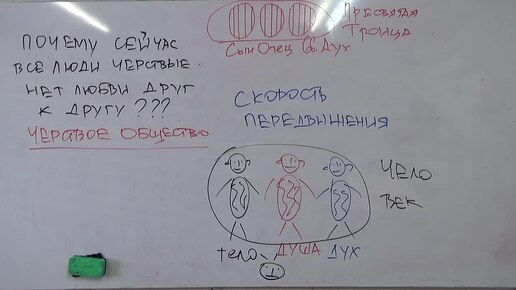 ПОЧЕМУ СЕЙЧАС
ВСЕ ЛЮДИ ЧЕРСТВЫЕ
НЕТ ЛЮБВИ ДРУГ
К ДРУГУ ???
ЧЕРСТВОЕ ОБЩЕСТВО
ПРЕСВЯТАЯ
ТРОИЦА
Сын Отец Св. Дух
СКОРОСТЬ
ПЕРЕДВИЖЕНИЯ
ЧЕЛО
ВЕК
тело ДУША ДУХ